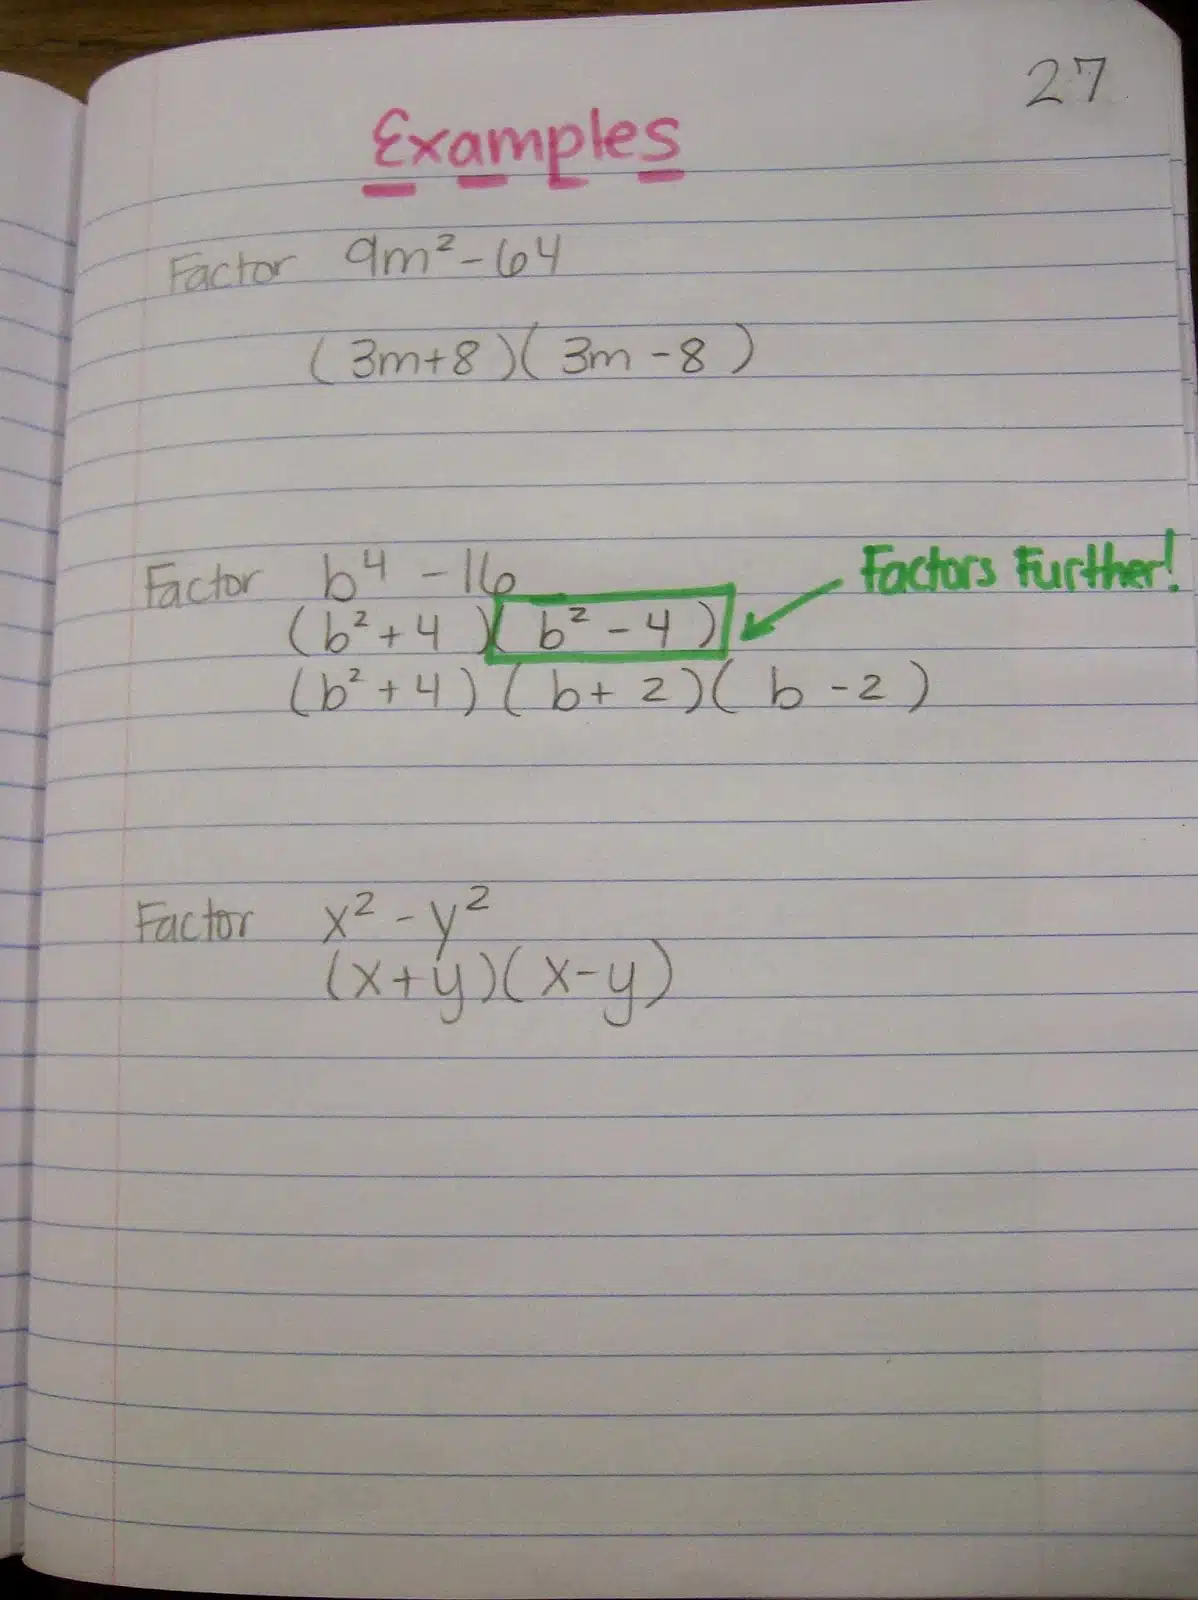 27
Examples
Factor 9m² - 64
(3m+8)(3m-8)
Factor b⁴ - 16
Factors Further!
(b²+4)(b²-4)
(b²+4)(b+2)(b-2)
Factor x² - y²
(x+y)(x-y)